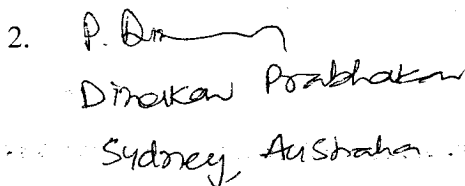 2. P. 
Dinakar Prabhakar
Sydney, Australia.